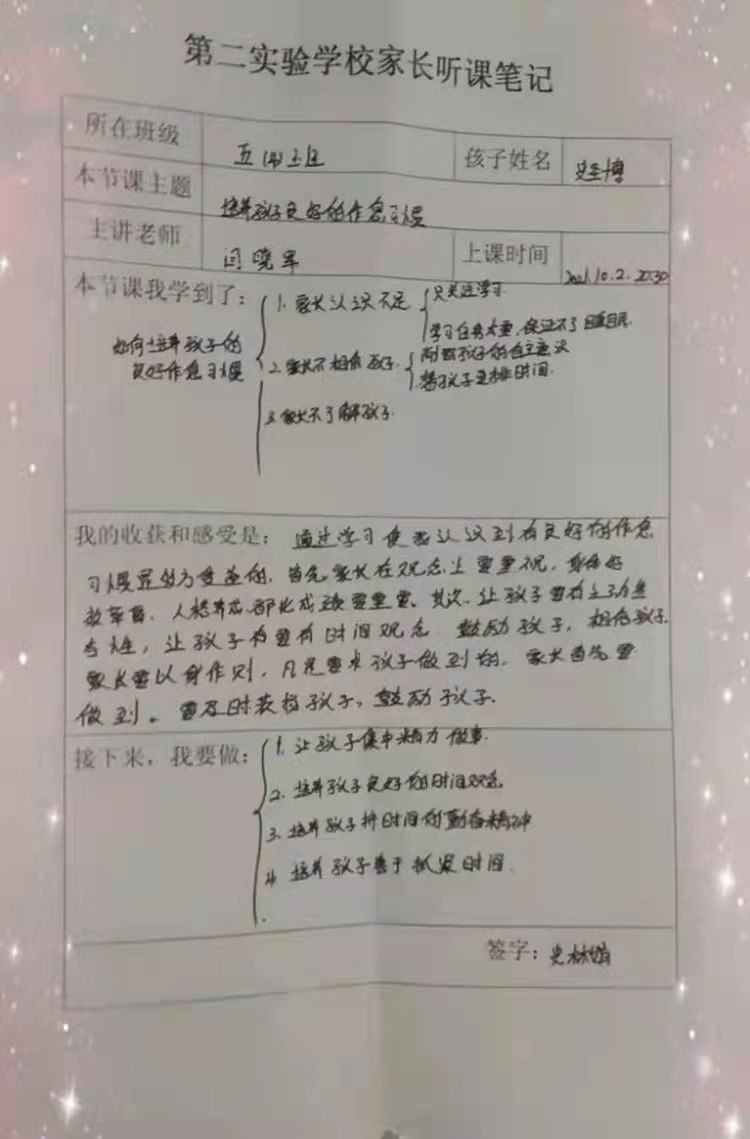 第二实验学校家长听课笔记
所在班级 五(四)班 孩子姓名
本节课主题 培养孩子良好的作息习惯
主讲老师 闫晓军 上课时间 2021.10.2. 20:30
本节课我学到了: 1. 家长认识不足 只关注学习
学习任务太重,保证不了睡眠.
如何培养孩子的
良好作息习惯 2.家长不相信孩子. 孩子的自主意识
替孩子安排时间.
3.家长不了解孩子.
我的收获和感受是: 通过学习使我认识到有良好的作息
习惯是的. 首先家长在观念上要重视, 身体好
人格养成都比成绩要重要. 其次, 让孩子要有主动
性, 让孩子有要有时间观念 鼓励孩子, 相信孩子.
家长要以身作则, 凡是要求孩子做到的. 家长首先要
做到。 要及时表扬孩子, 鼓励孩子.
接下来,我要做: 1. 让孩子集中精力做事.
2. 培养孩子良好的时间观念
3. 培养孩子 时间的勤奋精神
4. 培养孩子善于抓紧时间.
签字: 史林娟